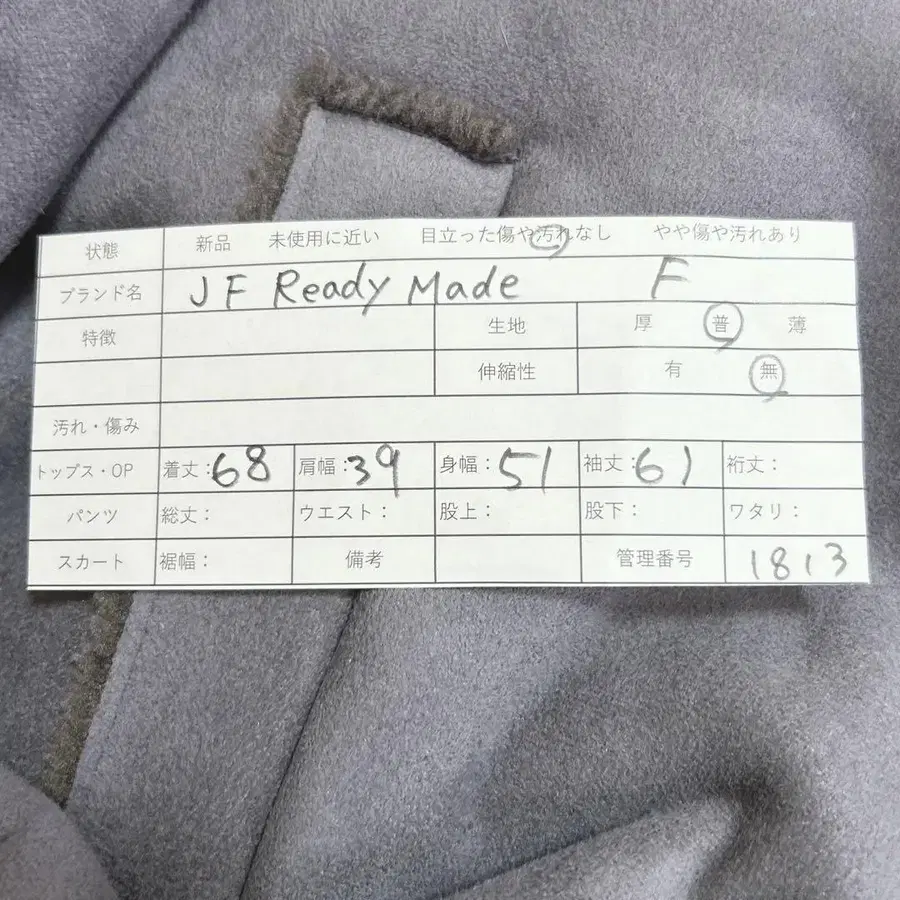 状態 新品 未使用に近い 目立った傷や汚れなし やや傷や汚れあり
ブランド名 JF Ready Made F
特徴 生地 厚 普 薄
伸縮性 有 無
汚れ・傷み
トップス・OP 着丈:68 肩幅:39 身幅:51 袖丈:61 裄丈:
パンツ 総丈: ウエスト: 股上: 股下: ワタリ:
スカート 裾幅: 備考 管理番号 1813